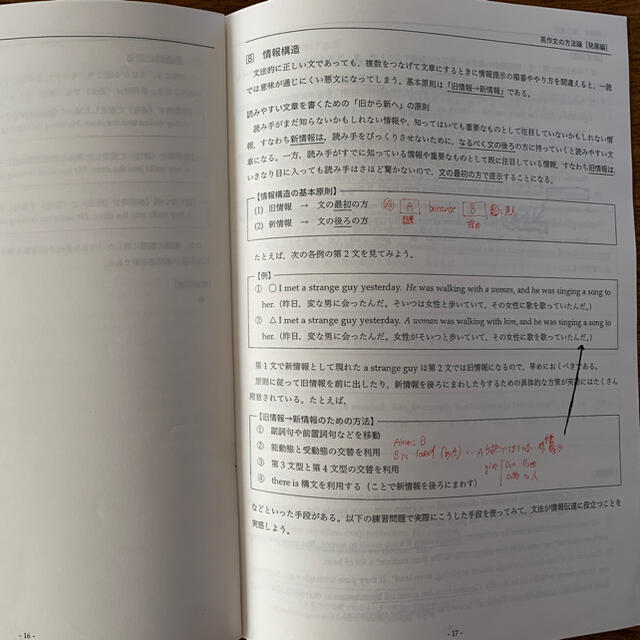 英作文の方法論【発展編】
[8] 情報構造
文法的に正しい文であっても，複数をつなげて文章にするときに情報提示の順番ややり方を間違えると，一読
では意味が通じにくい悪文になってしまう。基本原則は「旧情報→新情報」である。
読みやすい文章を書くための「旧から新へ」の原則
読み手がまだ知らないかもしれない情報や，知ってはいても重要なものとして注目していないかもしれない情
報，すなわち新情報は，読み手をびっくりさせないために，なるべく文の後ろの方に持っていくと読みやすい文
章になる。一方，読み手がすでに知っている情報や重要なものとして既に注目している情報，すなわち旧情報は，
いきなり目に入っても読み手はさほど驚かないので，文の最初の方で提示することになる。
【情報構造の基本原則】
(1) 旧情報 → 文の最初の方
A because B
(2) 新情報 → 文の後ろの方
たとえば，次の各例の第2文を見てみよう。
【例】
① ○ I met a strange guy yesterday. He was walking with a woman, and he was singing a song to
her.（昨日，変な男に会ったんだ。そいつは女性と歩いていて，その女性に歌を歌っていたんだ。）
② △ I met a strange guy yesterday. A woman was walking with him, and he was singing a song to
her.（昨日，変な男に会ったんだ。女性がそいつと歩いていて，その女性に歌を歌っていたんだ。）
第1文で新情報として現れた a strange guy は第2文では旧情報になるので，早めにおくべきである。
原則に従って旧情報を前に出したり，新情報を後ろにまわしたりするための具体的な方策が英語にはたくさん
用意されている。たとえば，
【旧情報→新情報のための方法】
① 副詞句や前置詞句などを移動
② 能動態と受動態の交替を利用
③ 第3文型と第4文型の交替を利用
④ there is 構文を利用する（ことで新情報を後ろにまわす）
などといった手段がある。以下の練習問題で実際にこうした手段を使ってみて，文法が情報伝達に役立つことを
実感しよう。
- 16 -
- 17 -